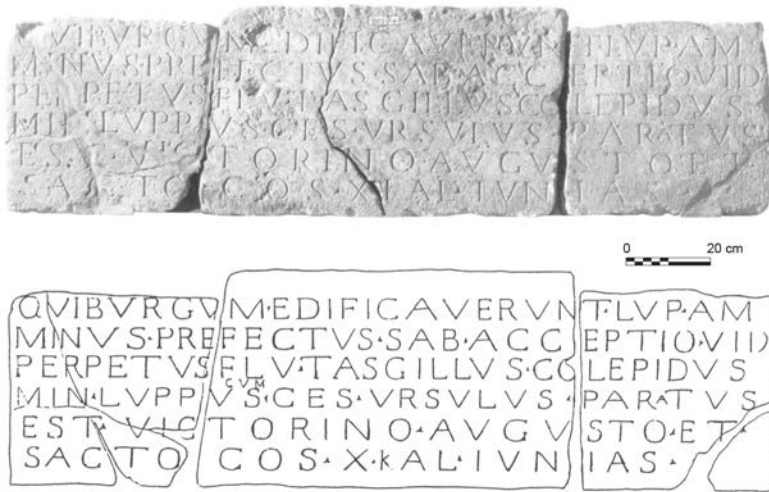 QVIBVRGVM·EDIFICAVERVNT·LVP·AM
MINVS·PREFECTVS·SAB·ACCEPTIO·VID
PERPETVS FLV·TASGILLVS·COLEPIDVS
MIN·LVPPVS·CES·VRSVLVS·PARATVS
EST·VICTORINO·AVGVSTO·ET
SACTO COS·X·KAL·IVNIAS
0 20 cm
QVIBVRGVM·EDIFICAVERVNT·LVP·AM
MINVS·PREFECTVS·SAB·ACCEPTIO·VID
PERPETVS FLV·TASGILLVS·COLEPIDVS
CVM
MIN·LVPPVS·CES·VRSVLVS·PAR·ATVS
EST·VICTORINO·AVGVSTO·ET·
SACTO COS·X·KAL·IVNIAS·